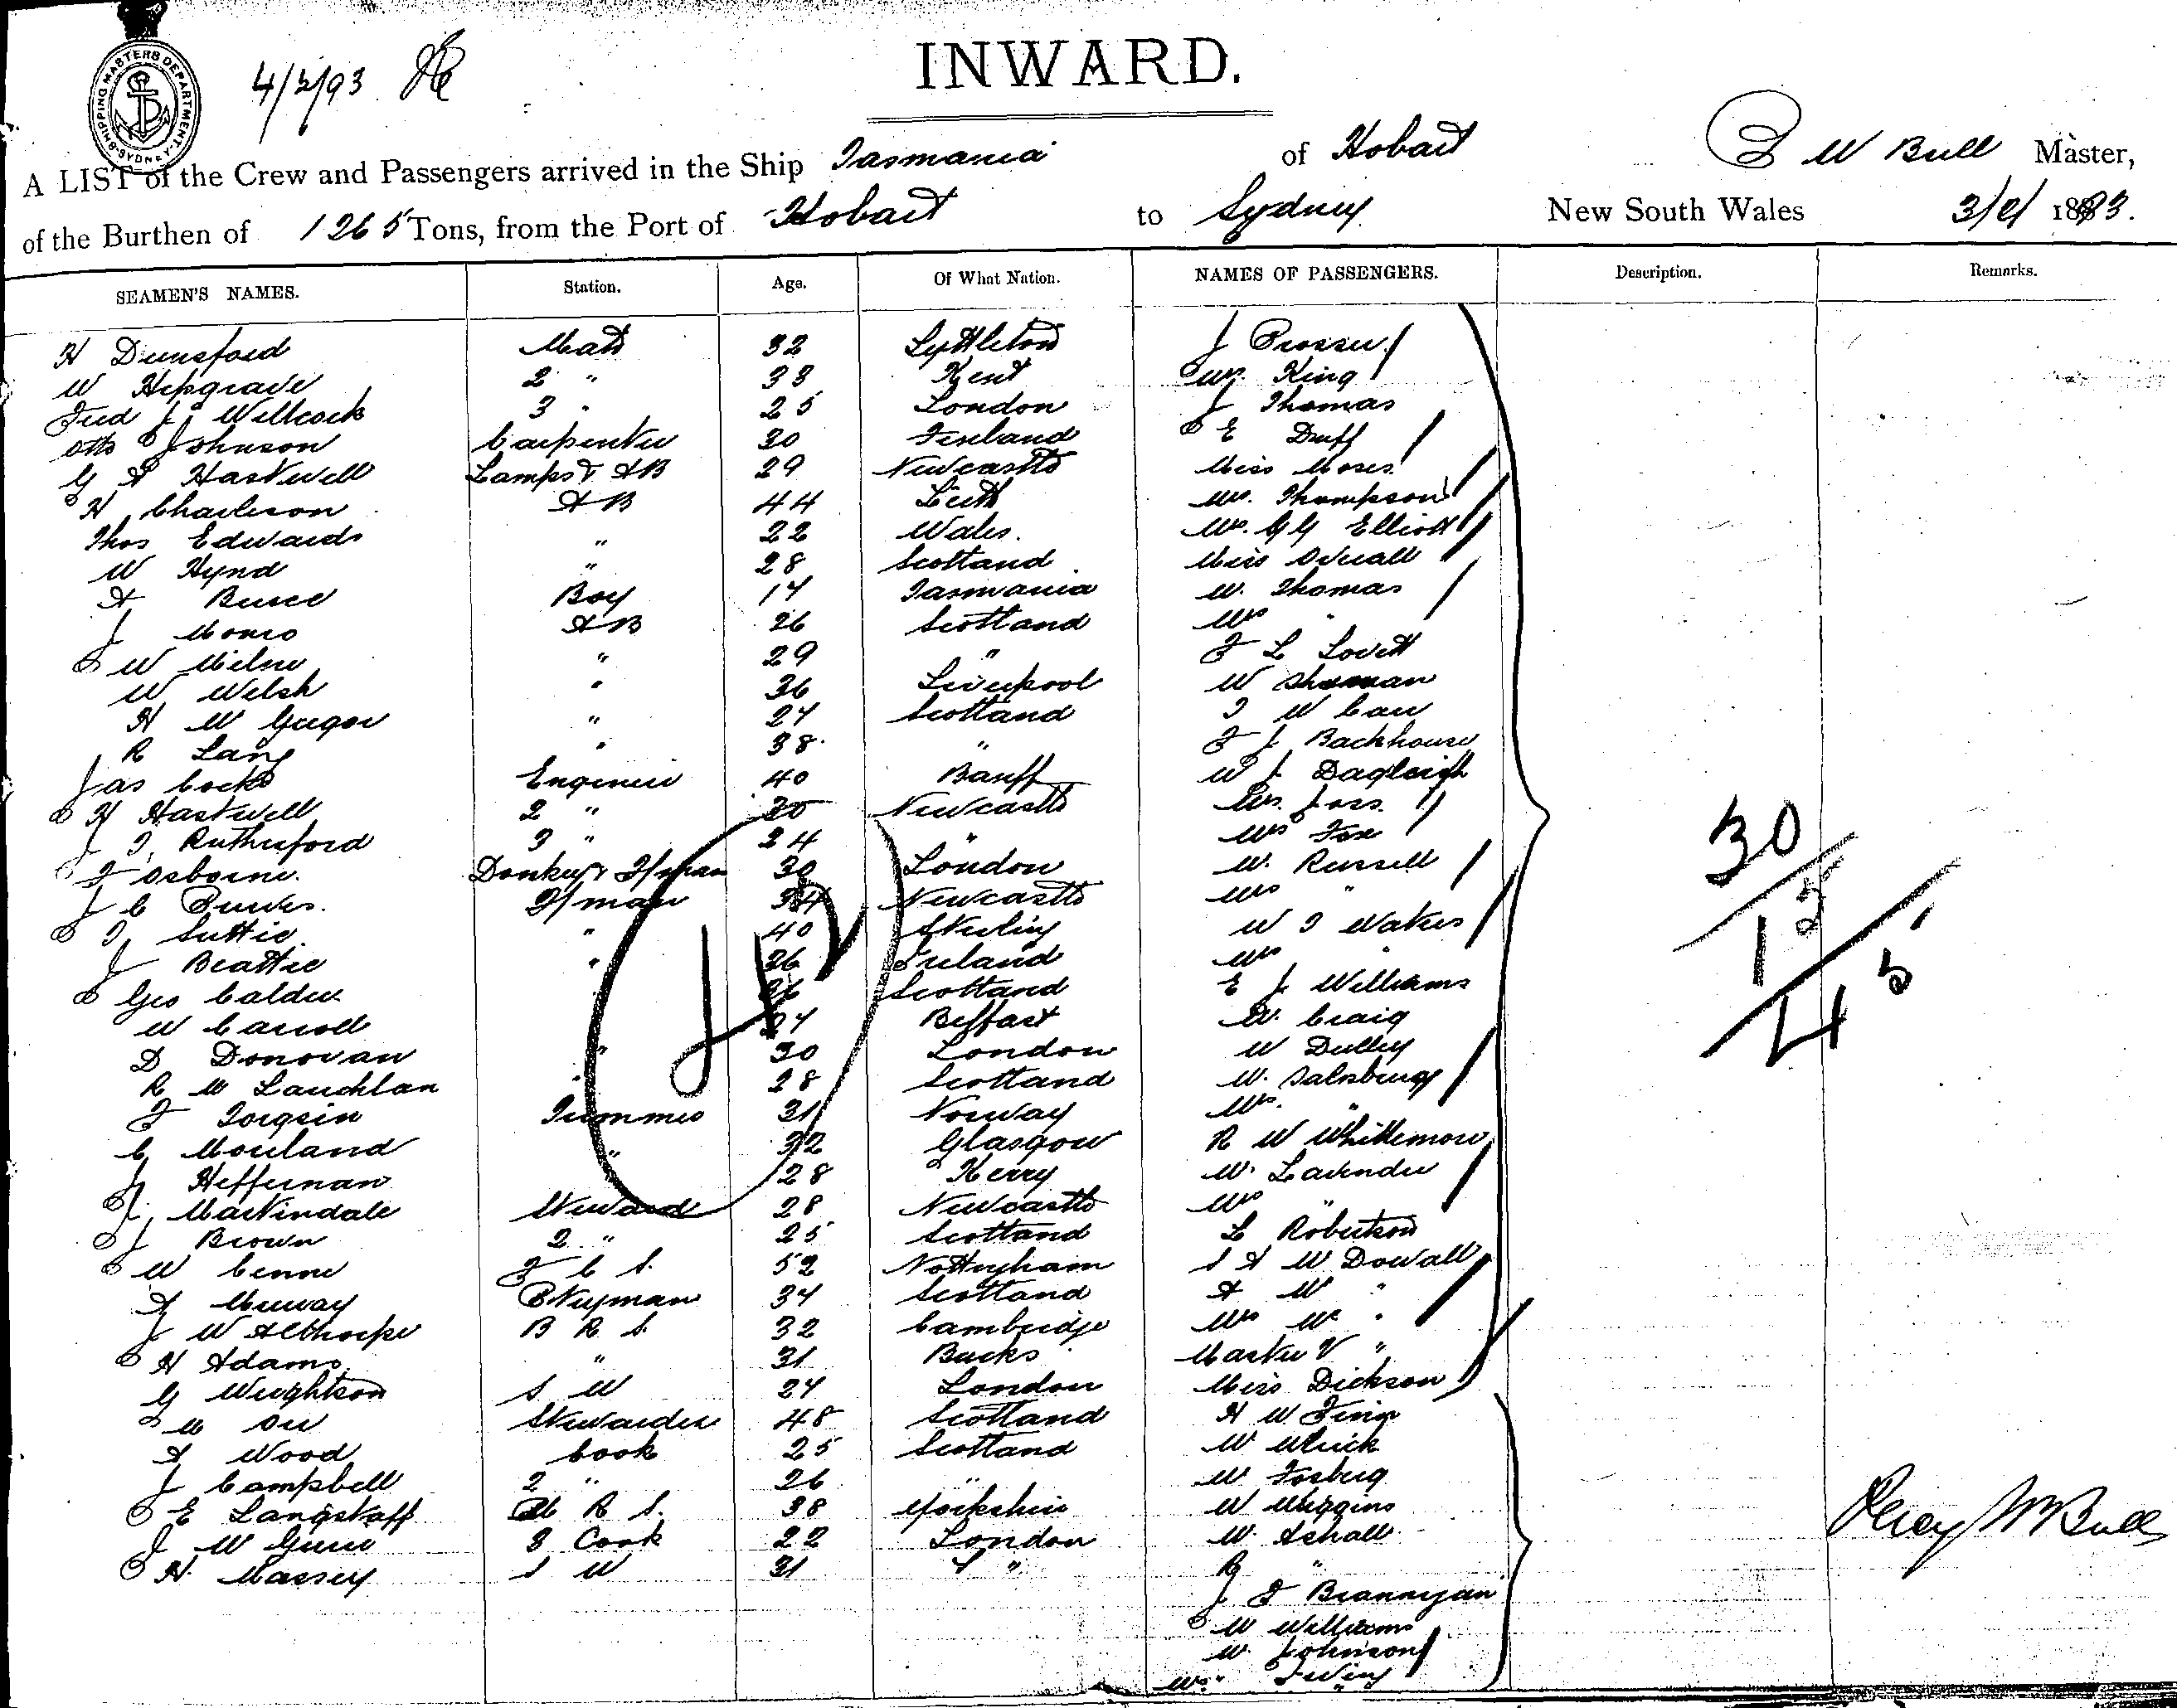 SHIPPING MASTERS DEPARTMENT. SYDNEY
4/2/93
INWARD.
A LIST of the Crew and Passengers arrived in the Ship Tasmania of Hobart W Bull Master,
of the Burthen of 1265 Tons, from the Port of Hobart to Sydney New South Wales 3/2/ 1893.
SEAMEN'S NAMES. Station. Age. Of What Nation. NAMES OF PASSENGERS. Description. Remarks.
H Dunsford Mate 32 Lyttleton J Prosser
W Hepgrave 2 " 33 Kent Mr. King
Fred J Willcock 3 " 25 London J Thomas
Otto Johnson Carpenter 30 Finland E Duff
G A Hastwell Lamps & AB 29 Newcastle Miss Moses
H Charleson AB 44 Leith Mr. Thompson
Thos Edwards " 22 Wales. Mr. G G Elliott
W Hynd " 28 Scotland Miss Overall
A Bruce Boy 17 Tasmania Mr. Thomas
J Monro AB 26 Scotland Mrs "
W Milne " 29 " F L Lovett
W Welsh " 36 Liverpool W
H Mc Gregor " 27 Scotland T W Carr
R Lang " 38 " F J Backhouse
Jas Cocks Engineer 40 Banff W J Dagleigh
H Hastwell 2 " 30 Newcastle Joss
J T Rutherford 3 " 24 " Mrs Fox
F Osborne. Donkey & F/man 30 London Mr. Russell
J C Purves. F/man 34 Newcastle Mrs "
T Suttie " 40 Stirling W T Waters
J Beattie " 26 Ireland Mrs "
Geo Calder 26 Scotland E J Williams
W Carroll 27 Belfast Mr. Craig
D Donovan " 30 London W Dulley
R Mc Lauchlan " 28 Scotland Mr. Salisbury
F Torgsin Trimmer 31 Norway Mrs. "
C Morland " 32 Glasgow R W Whittemore
J Heffernan 28 Kerry Mr. Lavender
J Martindale Steward 28 Newcastle Mrs "
J Brown 2 " 25 Scotland L Robertson
W F C S. 52 Nottingham S A Mc Dowall
A Murray P/tryman 34 Scotland A Mc "
J W Althorpe B R S. 32 Cambridge Mrs Mc "
H Adams " 31 Bucks Master V "
G Wrightson S W 27 London Miss Dickson
M Orr Stewardess 48 Scotland H W Finn
A Wood Cook 25 Scotland Mr Ulrick
J Campbell 2 " 26 " Mr Fosberg
E Langstaff R S. 38 Yorkshire Mr Wiggins
J W Gunn 3 Cook 22 London Mr. Ashall
H. Massey S W 31 " R "
J F Brannigan
Mr Williams
Mr. Johnson
Mrs. Ewing
30
15
45
47
Percy W Bull